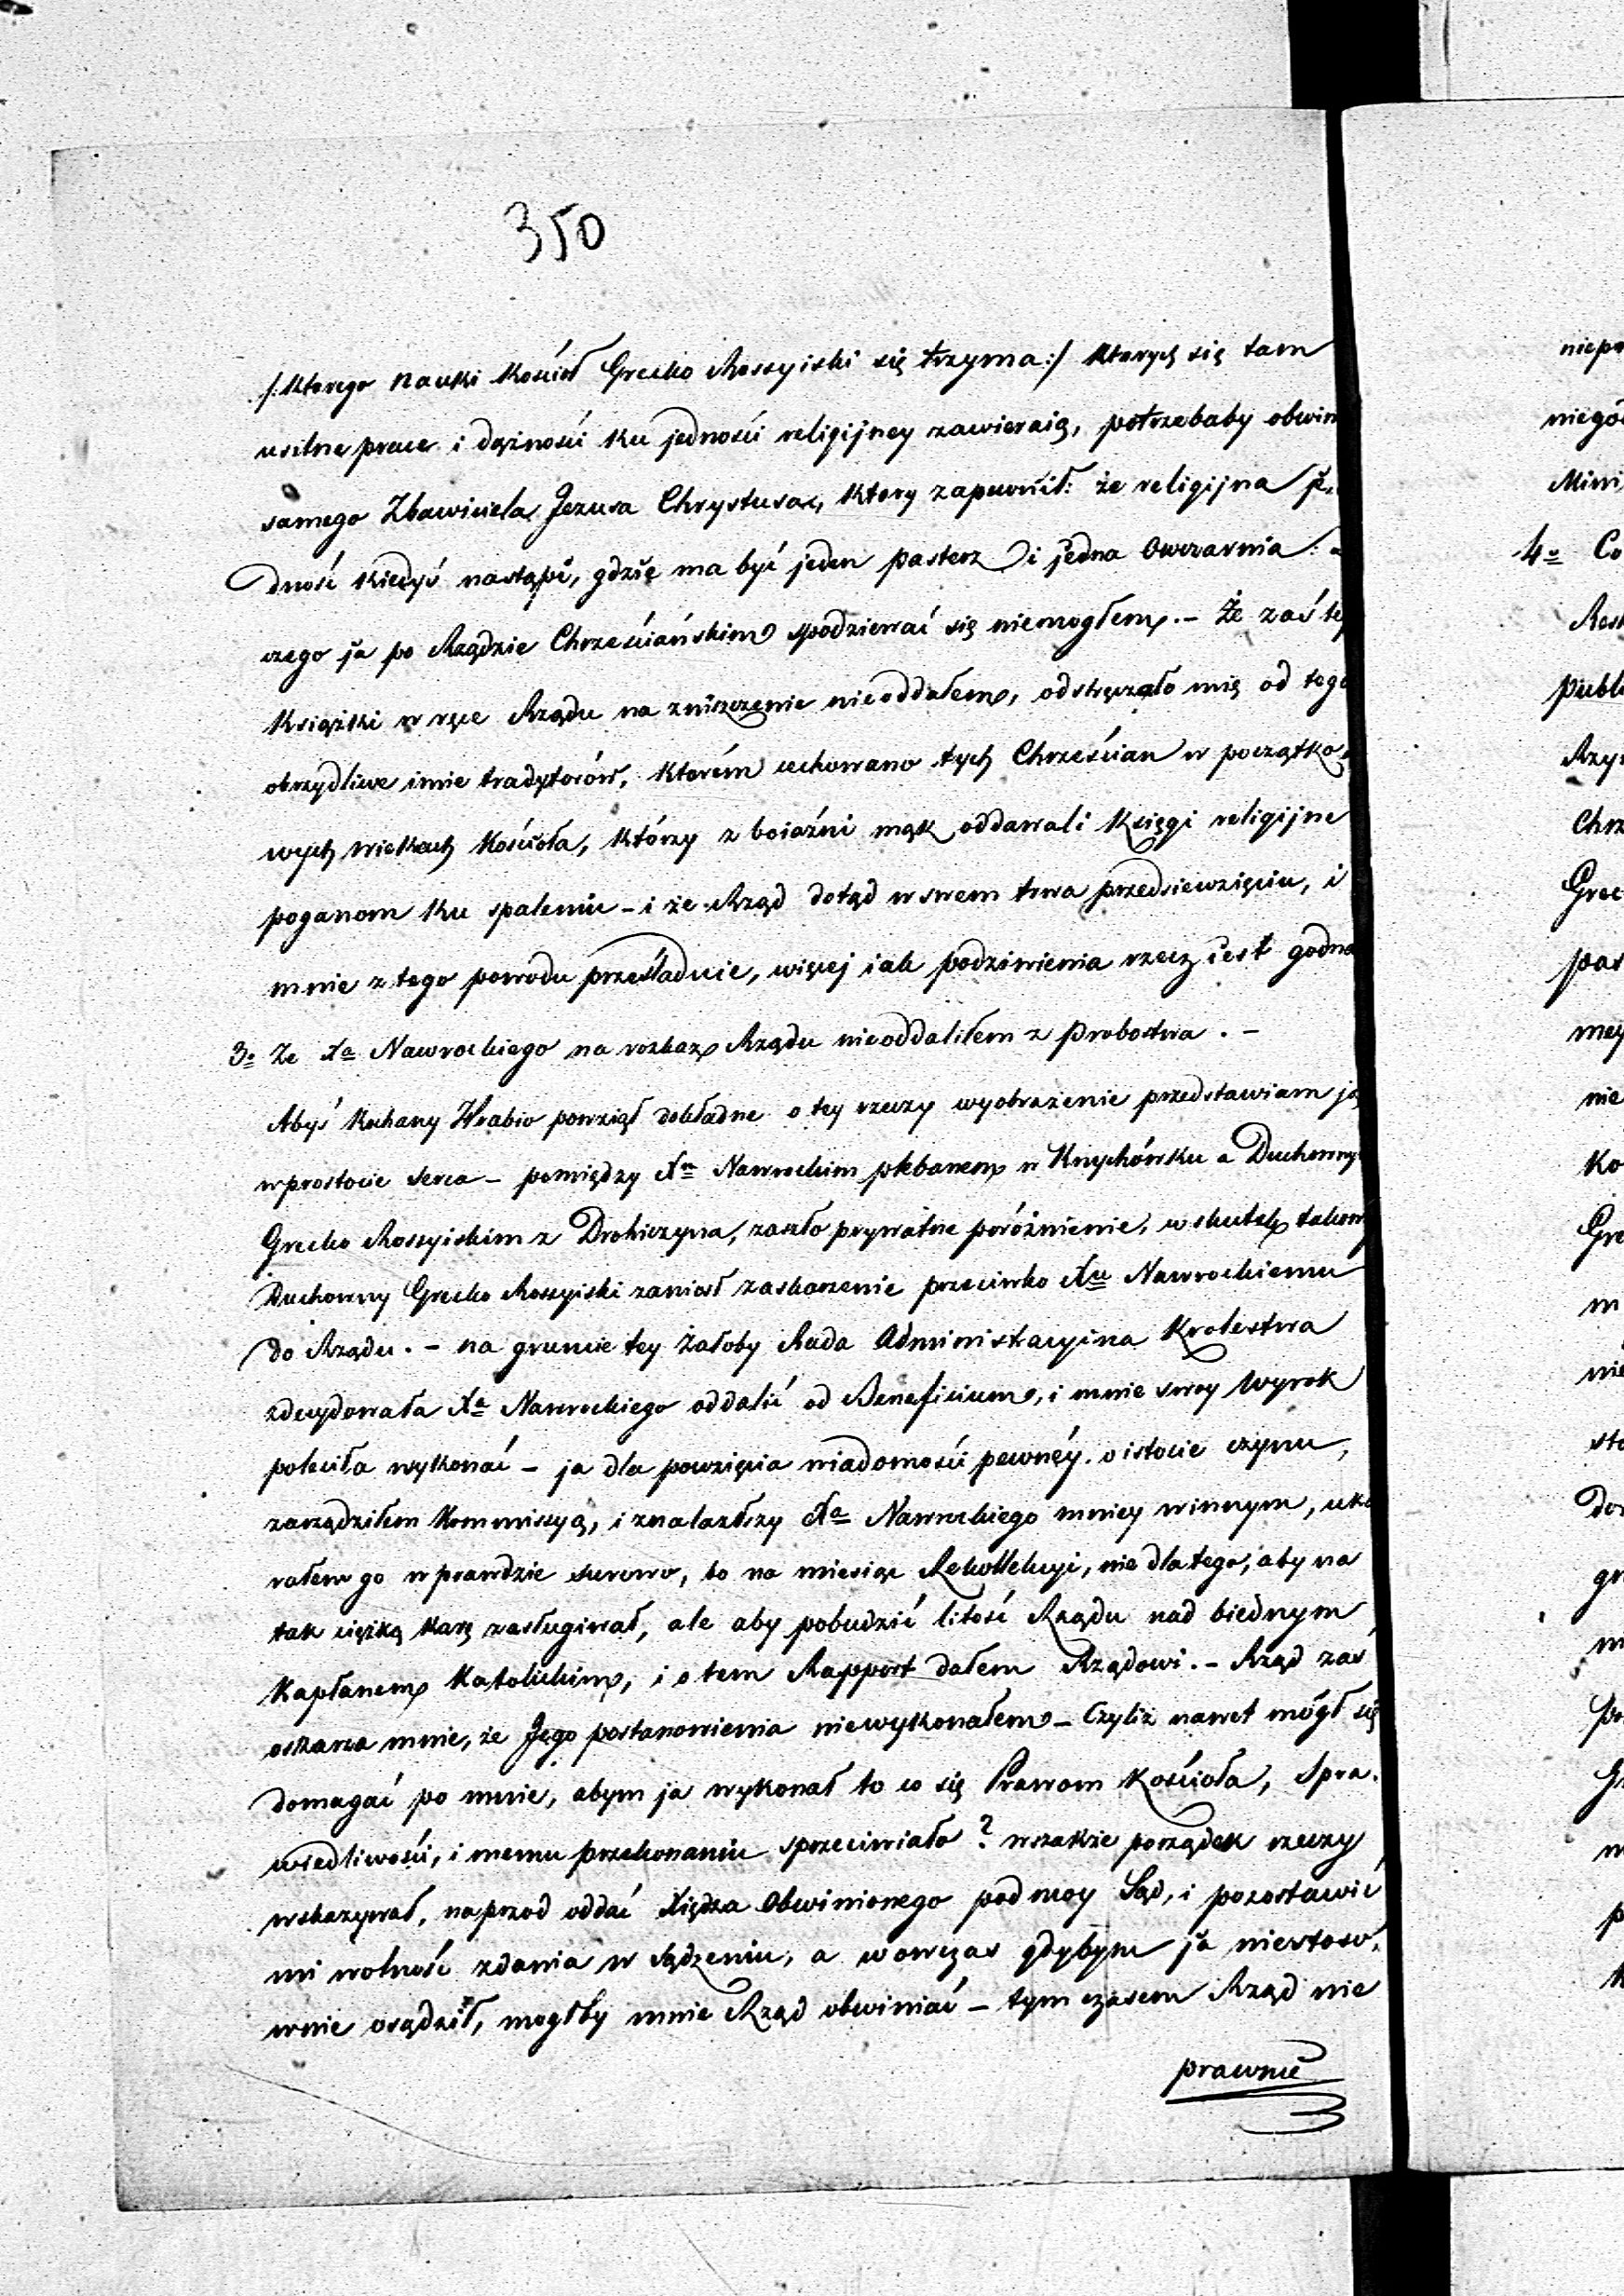 350
/:Ktorego Nauki Kościoł Grecko Rossyiski się trzyma:/ Ktorych się tam
usilne prace i dążności ku jedności religijney zawieraią, potrzebaby obwin
samego Zbawiciela Jezusa Chrystusa, Ktory zapewnił: że religijna je-
dność kiedyś nastąpi, gdzie ma być jeden pasterz i jedna Owczarnia:
czego ja po Rządzie Chrześciańskim spodziewać się niemogłem. - Że zaś tey
Książki w ręce Rządu na zniszczenie nieoddałem, odstręczało mię od tego
obrzydliwe imie tradytorów, ktorém cechowano tych Chrześcian w początko-
wych wiekach Kościoła, którzy z boiaźni mąk oddawali Księgi religijne
poganom ku spaleniu - i że Rząd dotąd w swem trwa przedsiewzięciu, i
mnie z tego powodu prześladuie, więcej iak podziwienia rzecz iest godna
3o Że Xa Nawrockiego na rozkaz Rządu nieoddaliłem z Probostwa. -
Abyś Kochany Hrabio powziął dokładne o tey rzeczy wyobrażenie przedstawiam ją
w prostocie serca - pomiędzy Xm Nawrockim plebanem w Knychówku a Duchownym
Grecko Rossyiskim z Drohiczyna, zaszło prywatne poróżnienie, w skutek takowego
Duchowny Grecko Rossyiski zaniosł zaskarzenie przeciwko Xu Nawrockiemu
do Rządu. - na gruncie tey żałoby Rada Administracyina Krolestwa
zdecydowała Xa Nawrockiego oddalić od Beneficium, i mnie swoy Wyrok
poleciła wykonać - ja dla powzięcia wiadomości pewnéy o istocie czynu,
zarządziłem Kommissyą, i znalazłszy Xa Nawrockiego mniey winnym, uka
rałem go w prawdzie surowo, bo na miesiąc Rekollekcyi, nie dla tego, aby na
tak ciężką karę zasługiwał, ale aby pobudzić litość Rządu nad biednym
Kapłanem Katolickim, i o tem Rapport dałem Rządowi. - Rząd zaś
oskarza mnie, że Jego postanowienia niewykonałem - Czyliż nawet mógł się
domagać po mnie, abym ja wykonał to co się Prawom Kościoła, Spra-
wiedliwości, i memu przekonaniu sprzeciwiało? wszakże porządek rzeczy
wskazywał, naprzod oddać Xiędza Obwinionego pod moy Sąd, i pozostawić
mi wolność zdania w Sądzeniu, a wowczas gdybym ja niestoso-
wnie osądził, mogłby mnie Rząd obwiniać - tym czasem Rząd nie
prawnie
niepo
niegó
Mini
4o Co
Publi
Rzym
Chrz
Grec
pas
mey
nie
Ko
Gre
m
nie
sto